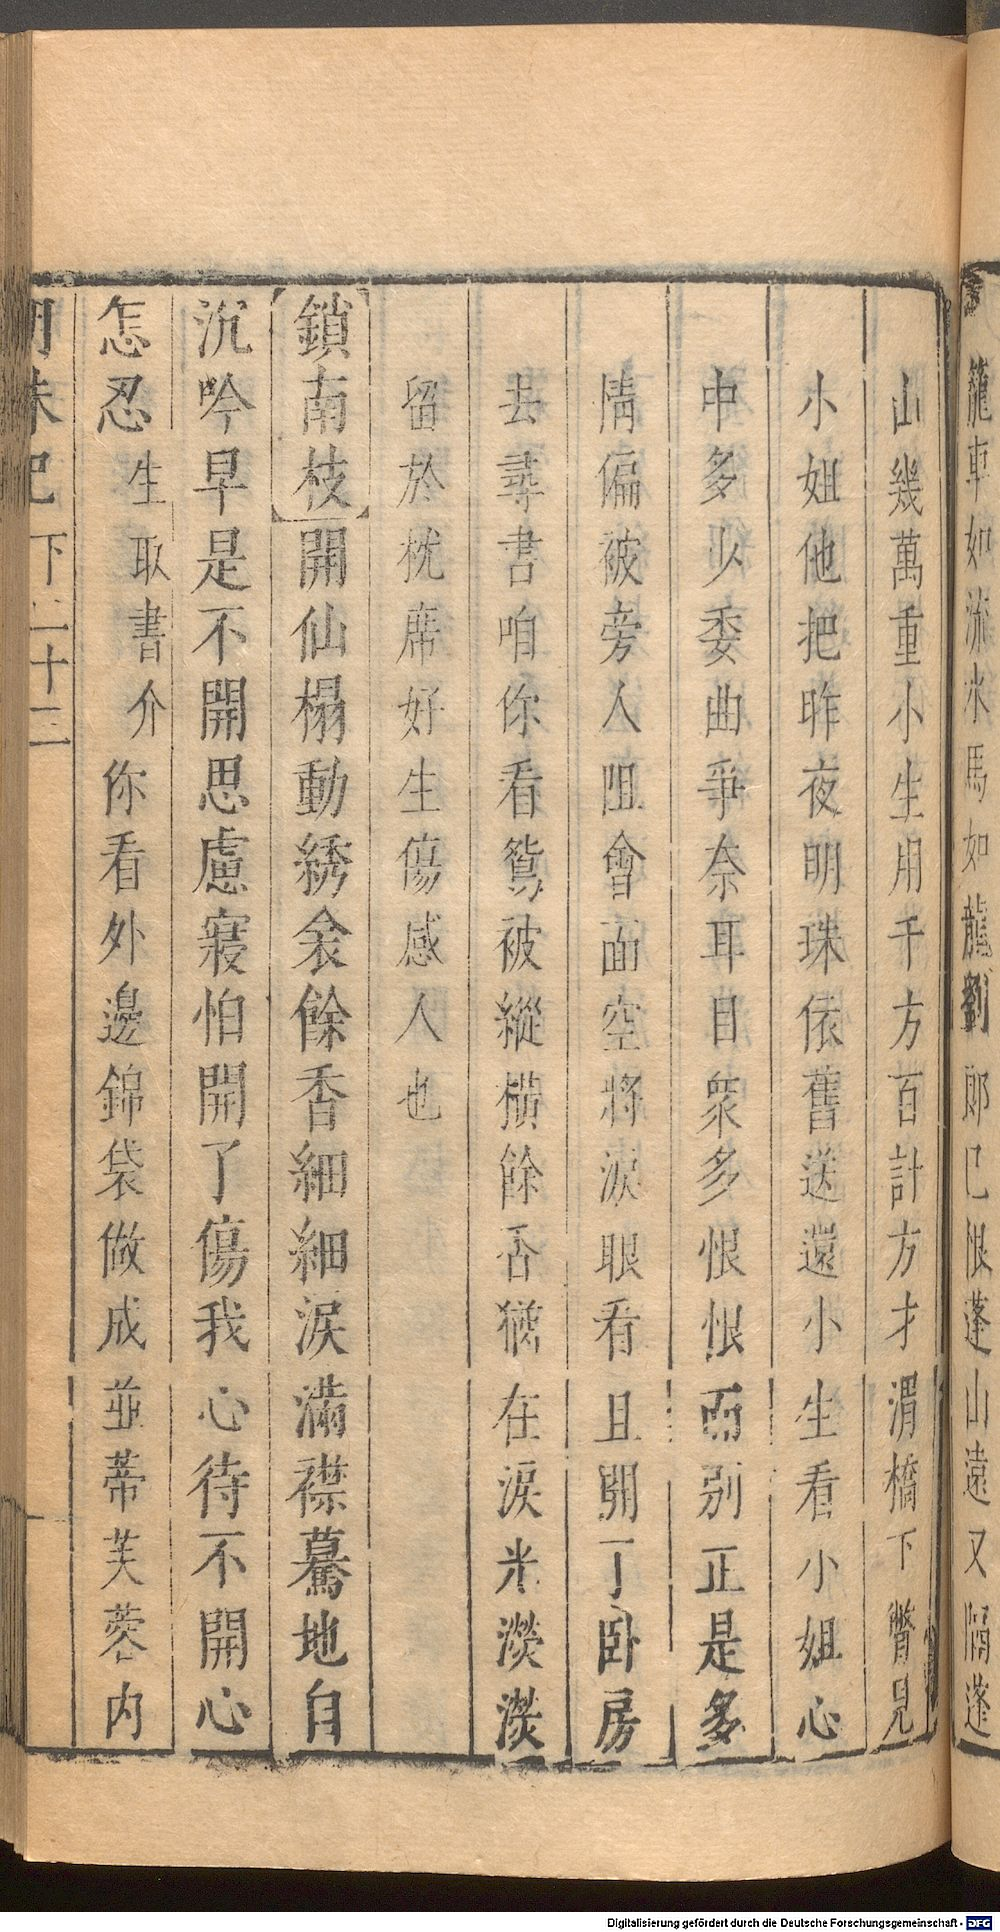 籠車如流水馬如龍劉郎已恨蓬山遠又隔蓬
山幾萬重小生用千方百計方才渭橋下瞥見
小姐他把昨夜明珠依舊送還小生看小姐心
中多少委曲爭奈耳目衆多恨恨而別正是多
情偏被旁人阻會面空將淚眼看且開了卧房
去尋書咱你看鴛被縱橫餘香猶在淚米漤漤
留於枕席好生傷感人也
鎖南枝開仙榻動綉衾餘香細細淚滿襟驀地自
沉吟早是不開思慮寢怕開了傷我心待不開心
怎忍生取書介你看外邊錦袋做成並蒂芙蓉内
明珠記 下二十三
Digitalisierung gefördert durch die Deutsche Forschungsgemeinschaft - DFG